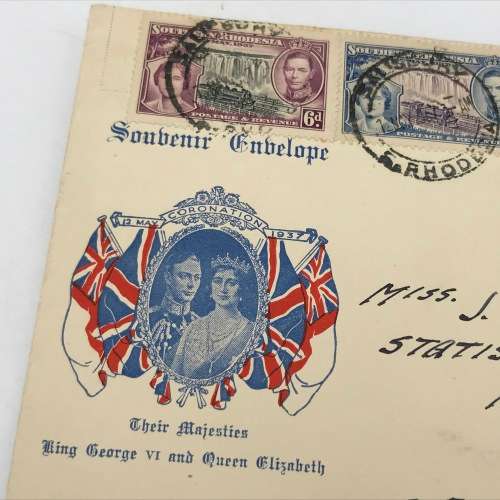 SOUTHERN RHODESIA
6d
POSTAGE & REVENUE
SOUTHERN RHODESIA
POSTAGE & REVENUE
S. RHODESIA
Souvenir Envelope
12 MAY CORONATION 1937
Their Majesties
King George VI and Queen Elizabeth
MISS. J.
STATIS